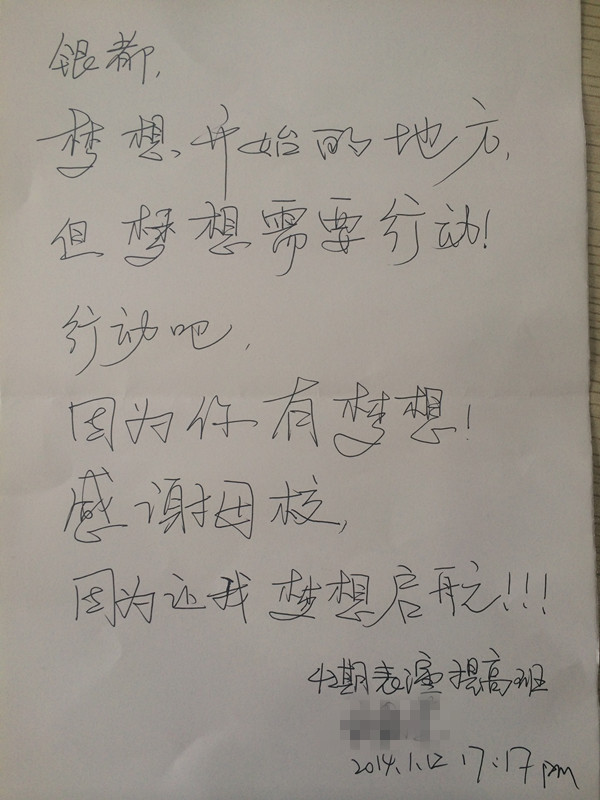 银都,
梦想开始的地方,
但梦想需要行动!
行动吧,
因为你有梦想!
感谢母校,
因为让我梦想启航!!!
42期表演提高班
2014.1.12 17:17pm